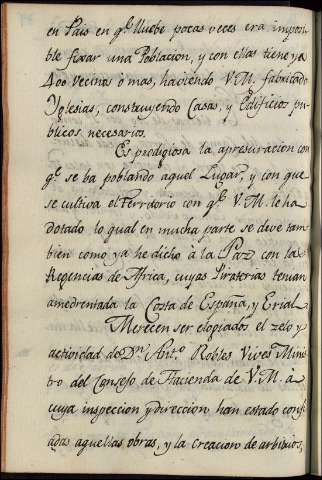 en Pais en q.e llueve pocas veces era imposi
ble fixar una Poblacion, y con ellas tiene ya
400 vecinos ò mas, haciendo V.M. fabricado
Yglesias, construyendo Casas, y Edificios pu
blicos necesarios.
Es prodigiosa la apresuracion con
q.e se ba poblando aquel Lugar, y con que
se cultiva el Territorio con q.e V.M. le ha
dotado lo qual en mucha parte se deve tam
bien como ya he dicho à la Paz con las
Regencias de Africa, cuyas Piraterias tenian
amedrentada la Costa de España, y Erial.
Merecen ser elogiados el zelo y
actividad de Dn. Ant.o Robles Vives Minis
tro del Consejo de Hacienda de V.M. à
cuya inspeccion y direccion han estado confi
adas aquellas obras, y la creacion de arbitrios,